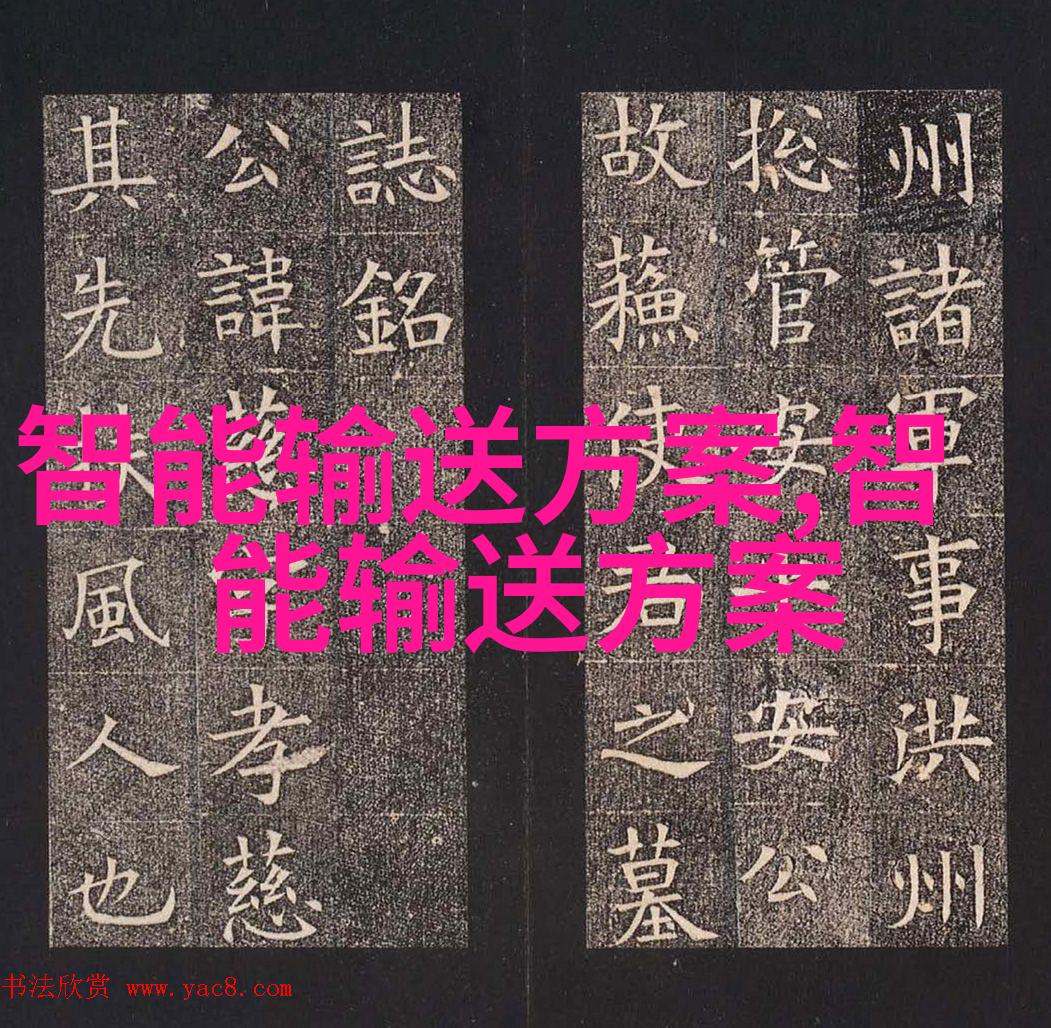 州諸軍事洪州
揔管安安公
故蘓使君之墓
誌銘
公諱慈孝慈
其先扶風人也
智能输送方案,智
能输送方案
书法欣赏 www.yac8.com